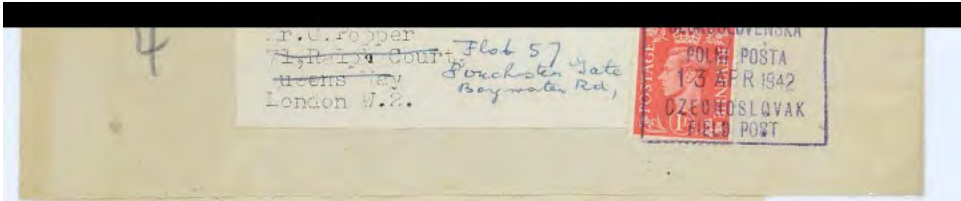 4
r.C.Popper
71,Ralph Court,
Queens Way
London W.2.
Flat 57
Porchester Gate
Bayswater Rd,
POSTAGE
1D
ČESKOSLOVENSKÁ
POLNÍ POŠTA
13 APR 1942
CZECHOSLOVAK
FIELD POST